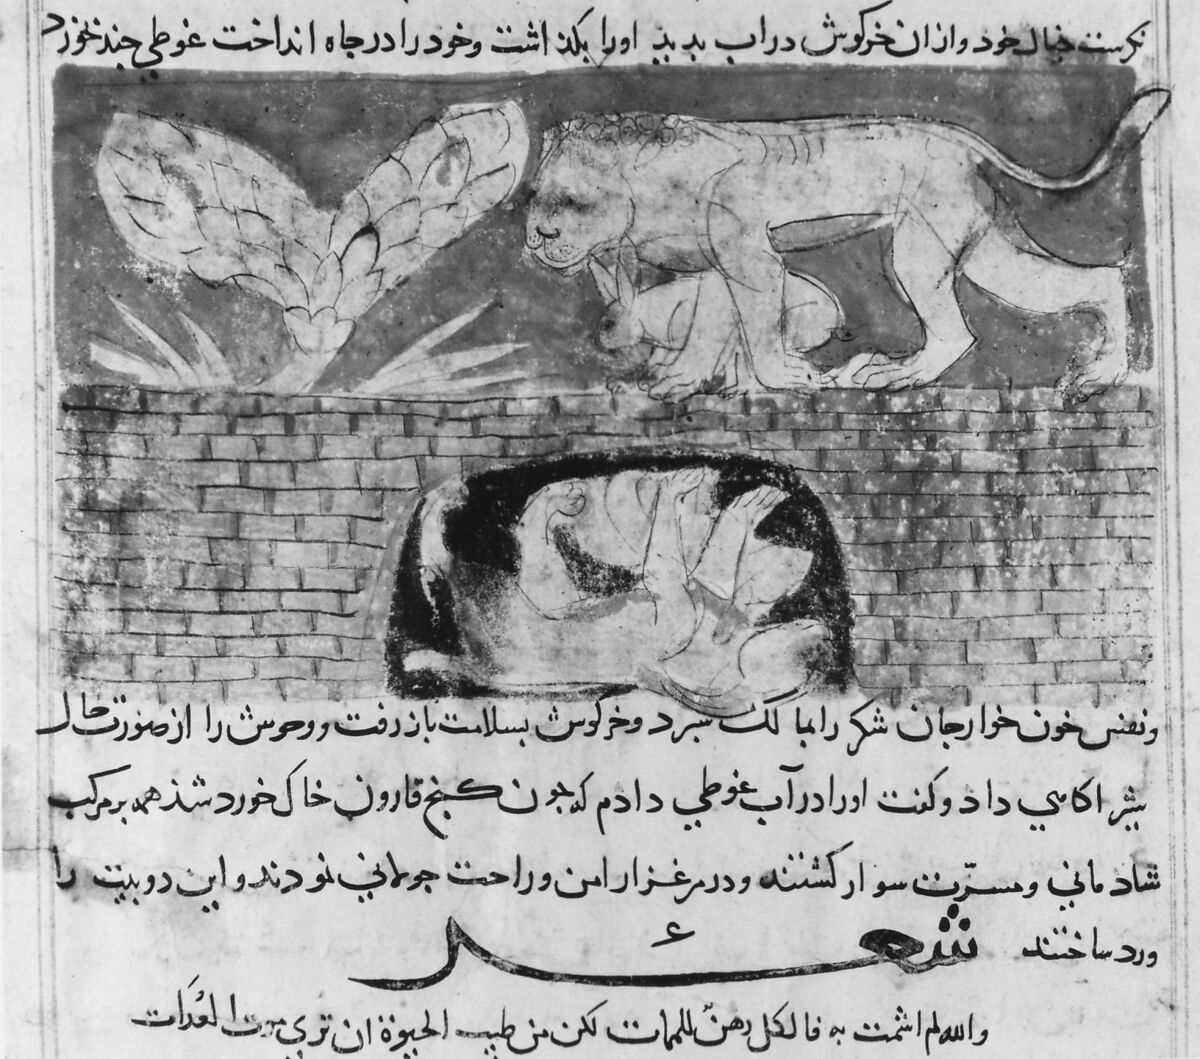 نکرست خیال خود و ازان خرکوش در اب بدید اورا بکذاشت و خود را در جاه انداخت غوطی جند خورد
و نفس خون خوار جان شکر را بمالک سبرد و خرکوش بسلامت باز رفت و وحوش را از صورت حال
شیر اکاهی داد و کفت اورا در آب غوطی دادم که جون کنج قارون خاک خورد شذ همه بر مرکب
شادمانی و مسرّت سوار کشتند و در مرغزار امن و راحت جولانی نمودند و این دو بیت را
ورد ساختند
شعر
والله لم اشمت به فالكل رهنٌ للممات لكن من طيب الحيوة ان تري موت العُدَات